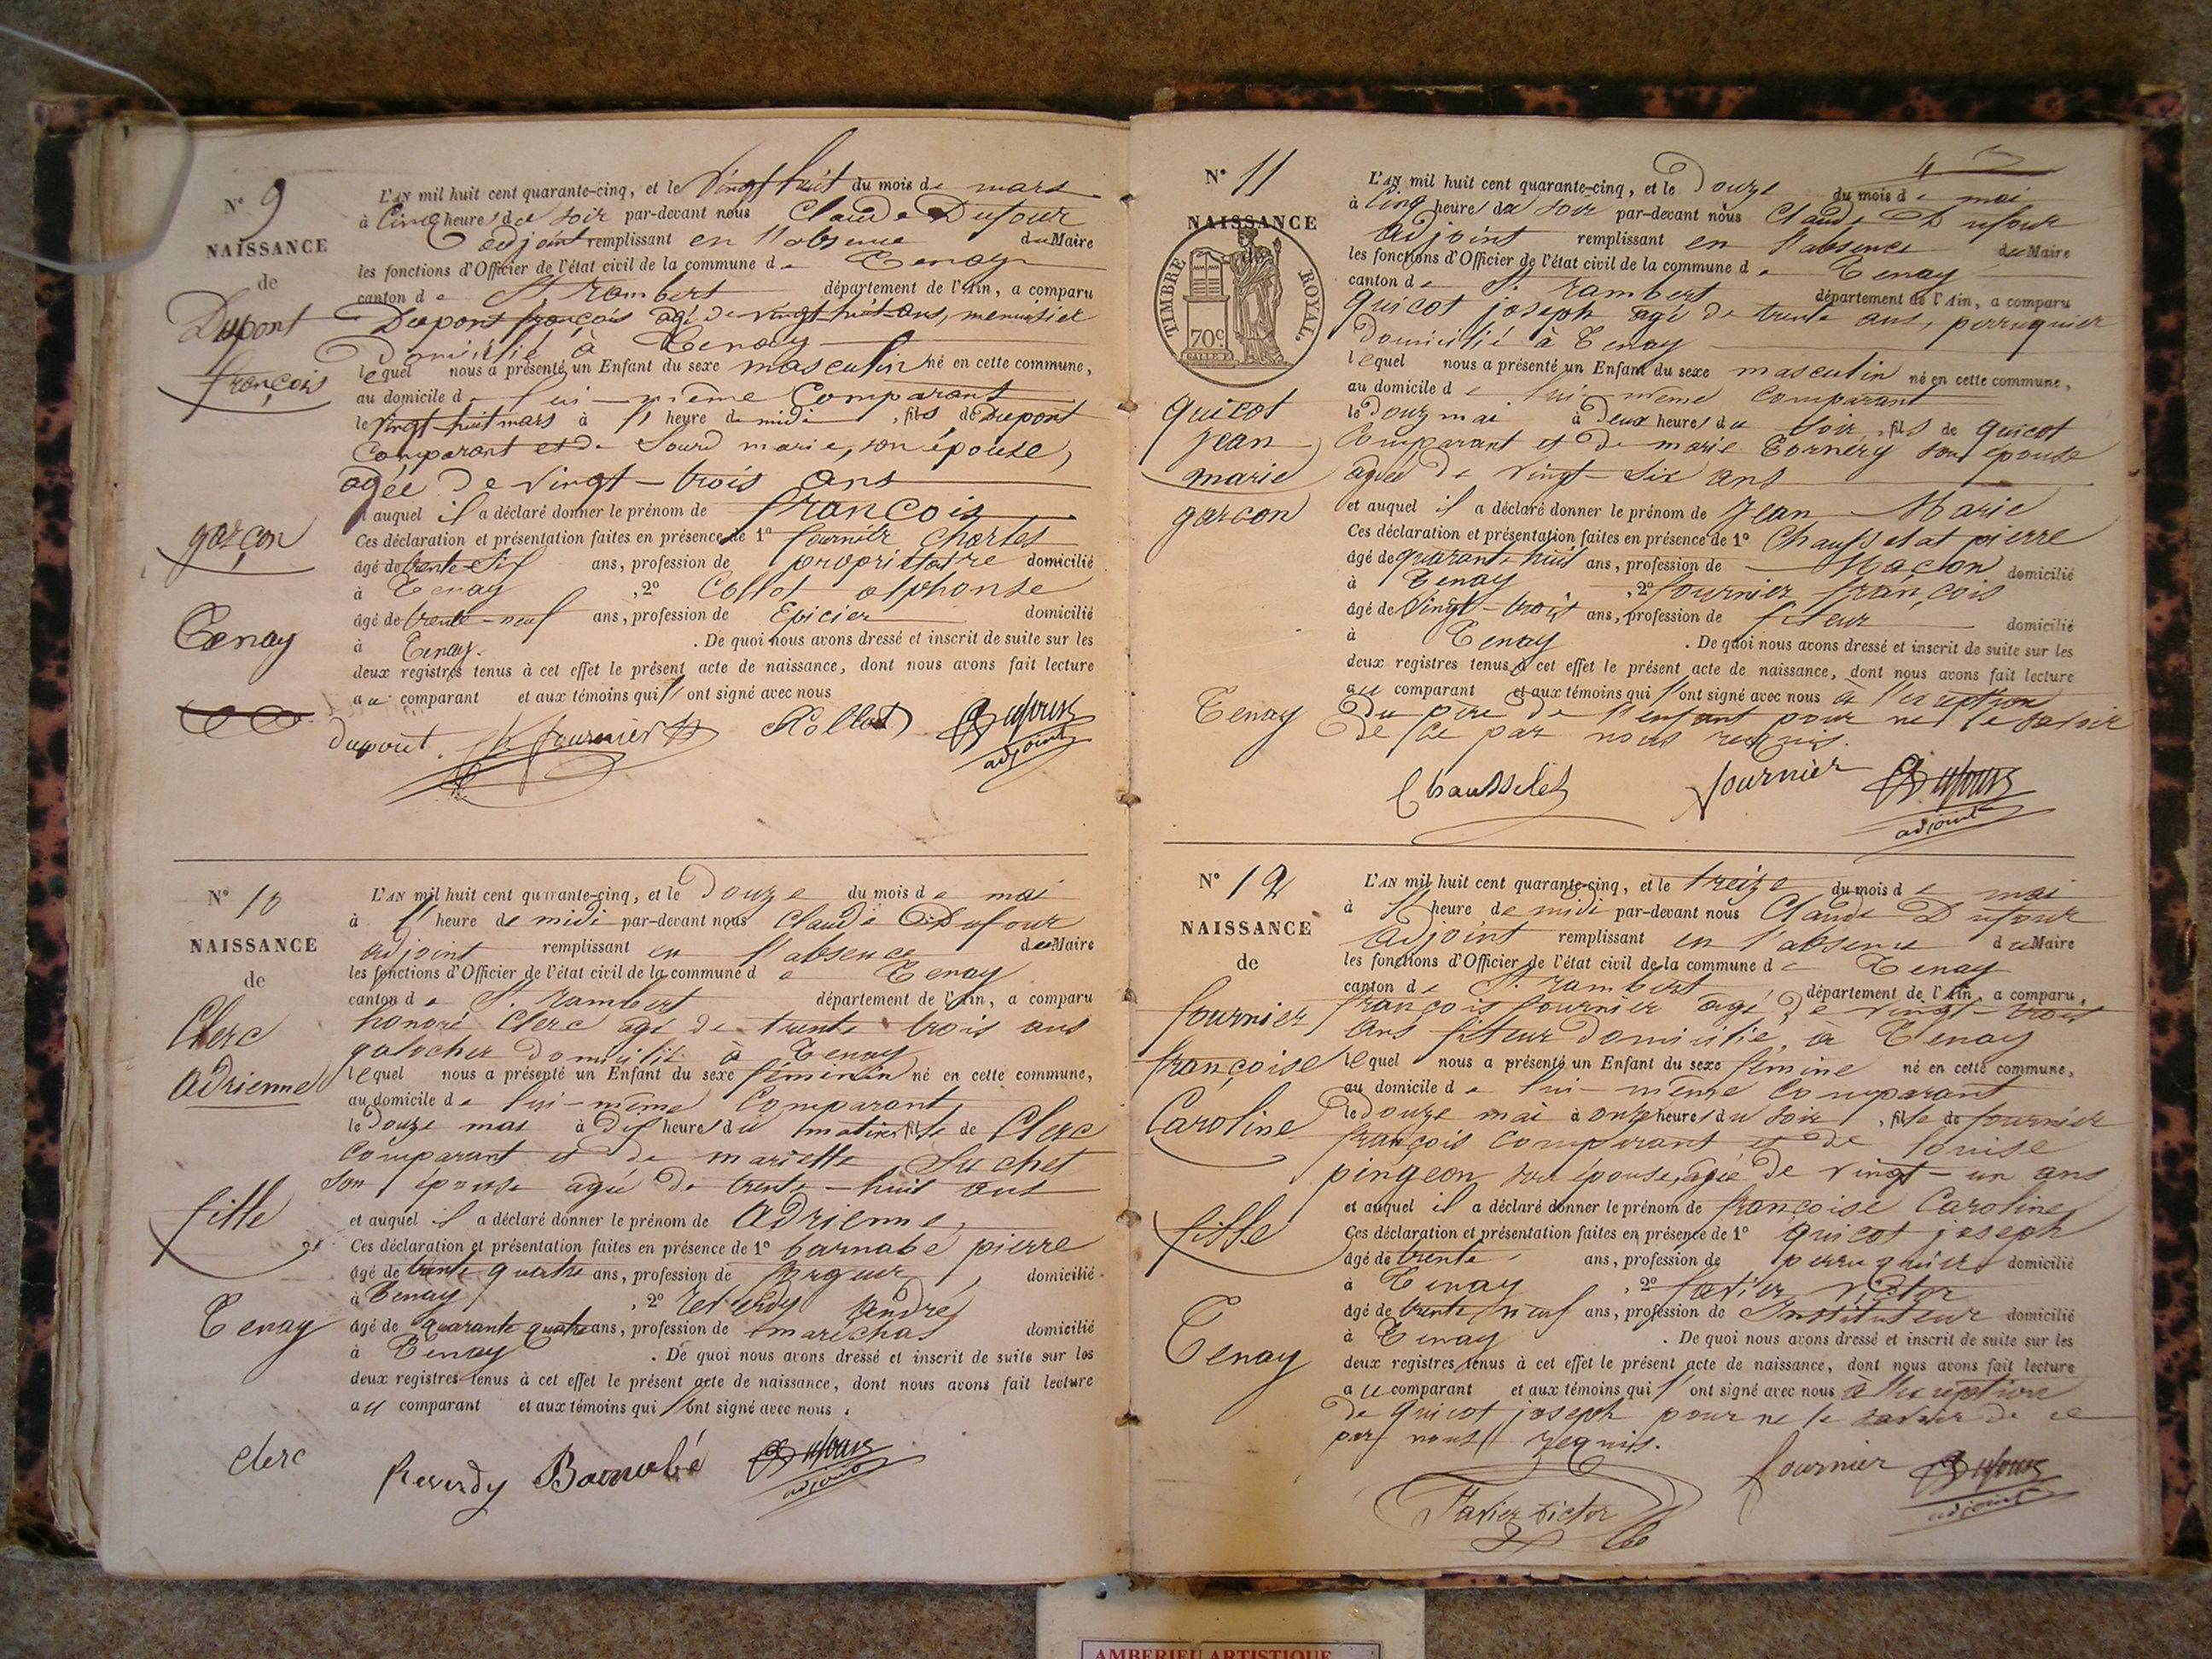 N° 9
NAISSANCE
de
Dupont
françois
garçon
Tenay
L'AN mil huit cent quarante-cinq, et le vingt huit du mois de mars
à cinq heures du soir par-devant nous Claude Dufour
adjoint remplissant en l'absence du Maire
les fonctions d'Officier de l'état civil de la commune de Tenay
canton de St. Rambert département de l'Ain, a comparu
Dupont françois agé de vingt huit ans, menuisier
domicilié à Tenay
lequel nous a présenté un Enfant du sexe masculin né en cette commune,
au domicile de lui-même Comparant
le vingt-huit mars à 1 heure de midi, fils de Dupont
Comparant et de Sourd marie, son épouse,
agée de vingt-trois ans
auquel il a déclaré donner le prénom de françois
Ces déclaration et présentation faites en présence de 1° fournier Charles
âgé de trente six ans, profession de propriétaire domicilié
à Tenay, 2° Collot alphonse
âgé de trente-neuf ans, profession de Epicier domicilié
à Tenay. De quoi nous avons dressé et inscrit de suite sur les
deux registres tenus à cet effet le présent acte de naissance, dont nous avons fait lecture
au comparant et aux témoins qui l'ont signé avec nous
dupont fournier Collot Dufour
adjoint
N° 10
NAISSANCE
de
Clerc
Adrienne
fille
Tenay
L'AN mil huit cent quarante-cinq, et le douze du mois de mai
à 1 heure de midi par-devant nous Claude Dufour
adjoint remplissant en l'absence du Maire
les fonctions d'Officier de l'état civil de la commune de Tenay
canton de St. Rambert département de l'Ain, a comparu
honoré Clerc agé de trente trois ans
galocher domicilié à Tenay
lequel nous a présenté un Enfant du sexe féminin né en cette commune,
au domicile de lui-même Comparant
le douze mai à dix heures du matin, fille de Clerc
Comparant et de mariette Suchet
son épouse agée de trente-huit ans
et auquel il a déclaré donner le prénom de Adrienne
Ces déclaration et présentation faites en présence de 1° barnabé pierre
âgé de trente quatre ans, profession de domicilié
à Tenay, 2° Reverdy André
âgé de quarante quatre ans, profession de maréchal domicilié
à Tenay. De quoi nous avons dressé et inscrit de suite sur les
deux registres tenus à cet effet le présent acte de naissance, dont nous avons fait lecture
au comparant et aux témoins qui l'ont signé avec nous.
Clerc Reverdy Barnabé Dufour
adjoint
4
N° 11
NAISSANCE
de
TIMBRE ROYAL
70c
quicot
jean
marie
garcon
Tenay
L'AN mil huit cent quarante-cinq, et le douze du mois de mai
à cinq heures du soir par-devant nous Claude Dufour
adjoint remplissant en l'absence du Maire
les fonctions d'Officier de l'état civil de la commune de Tenay
canton de St. rambert département de l'Ain, a comparu
quicot joseph agé de trente ans, perruquier
domicilié à Tenay
lequel nous a présenté un Enfant du sexe masculin né en cette commune,
au domicile de lui-même Comparant
le douz mai à deux heures du soir, fils de quicot
Comparant et de marie Tornéry son épouse
agée de vingt-six ans
et auquel il a déclaré donner le prénom de Jean Marie
Ces déclaration et présentation faites en présence de 1° Chausselat pierre
âgé de quarant-huit ans, profession de Maçon domicilié
à Tenay, 2° fournier françois
âgé de vingt-trois ans, profession de fileur domicilié
à Tenay. De quoi nous avons dressé et inscrit de suite sur les
deux registres tenus à cet effet le présent acte de naissance, dont nous avons fait lecture
au comparant et aux témoins qui l'ont signé avec nous à l'exeption
du père de l'enfant pour ne le savoir
de ce par nous requis.
Chausselet fournier Dufour
adjoint
N° 12
NAISSANCE
de
fournier
françoise
Caroline
fille
Tenay
L'AN mil huit cent quarante-cinq, et le treize du mois de mai
à 1 heure de midi par-devant nous Claude Dufour
adjoint remplissant en l'absence du Maire
les fonctions d'Officier de l'état civil de la commune de Tenay
canton de St. rambert, département de l'Ain, a comparu,
françois fournier agé de vingt-trois
ans fileur domicilié, à Tenay
lequel nous a présenté un Enfant du sexe fémine né en cette commune,
au domicile de lui-même Comparant
le douze mai à onze heures du soir, fille de fournier
françois Comparant et de louise
pingeon son épouse, agée de vingt-un ans
et auquel il a déclaré donner le prénom de françoise Caroline
Ces déclaration et présentation faites en présence de 1° quicot joseph
âgé de trente ans, profession de perruquier domicilié
à Tenay, 2° favier victor
âgé de trente neuf ans, profession de Instituteur domicilié
à Tenay. De quoi nous avons dressé et inscrit de suite sur les
deux registres tenus à cet effet le présent acte de naissance, dont nous avons fait lecture
au comparant et aux témoins qui l'ont signé avec nous à l'exeption
de quicot joseph pour ne le savoir de ce
par nous requis.
Favier victor fournier Dufour
adjoint
AMBERIEU ARTISTIQUE